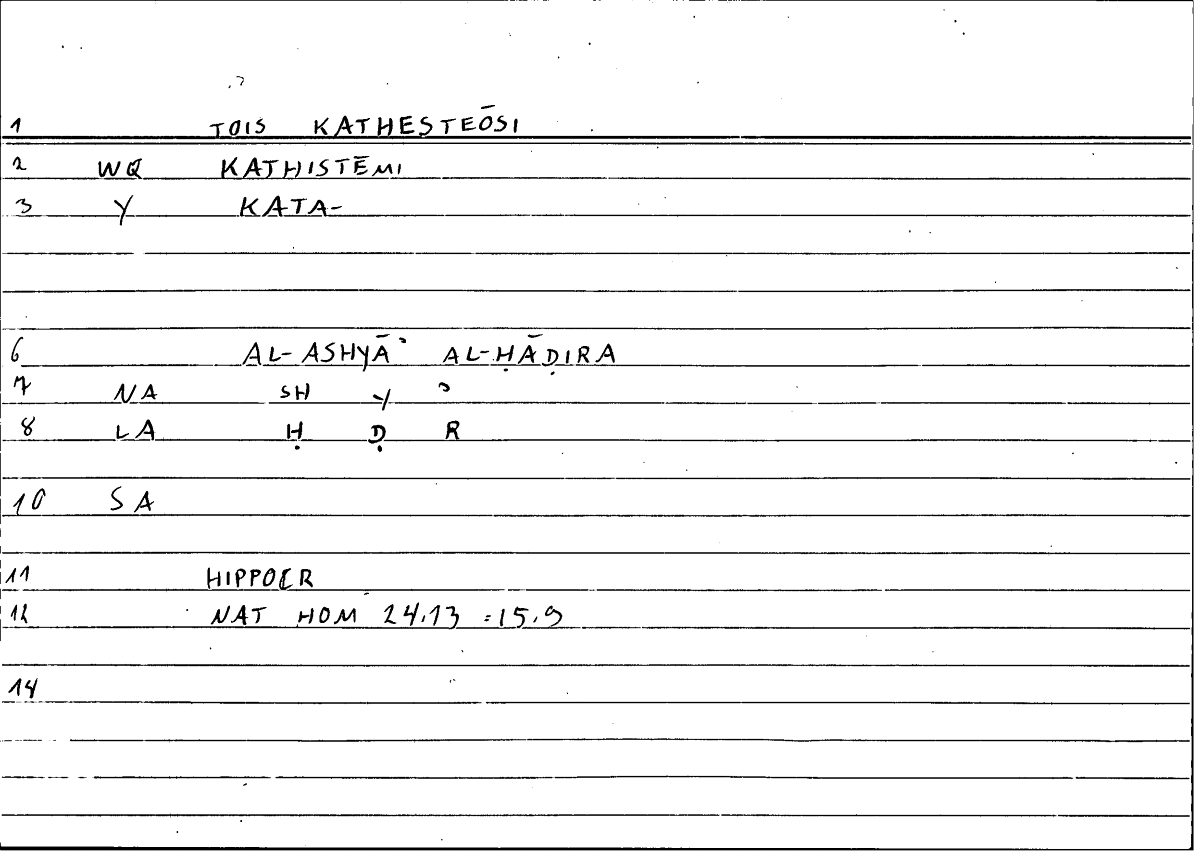 1 TOIS KATHESTEŌSI
2 WQ KATHISTĒMI
3 Y KATA-
6 AL-ASHYĀʾ AL-ḤĀḌIRA
7 NA SH Y ʾ
8 LA Ḥ Ḍ R
10 SA
11 HIPPOCR
12 NAT HOM 24.13 = 15.9
14